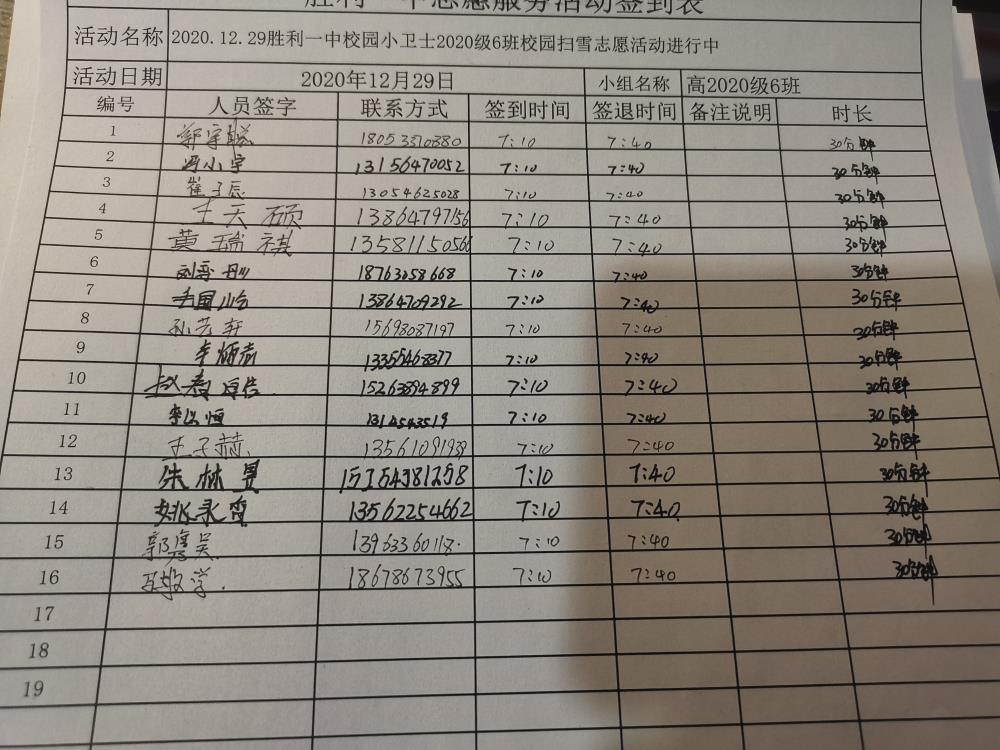 胜利一中志愿服务活动签到表
活动名称 2020.12.29胜利一中校园小卫士2020级6班校园扫雪志愿活动进行中
活动日期 2020年12月29日 小组名称 高2020级6班
编号 人员签字 联系方式 签到时间 签退时间 备注说明 时长
1 郭宇聪 18053310880 7:10 7:40 30分钟
2 冯小宇 13156470052 7:10 7:40 30分钟
3 崔子辰 13054625028 7:10 7:40 30分钟
4 王天硕 13864797156 7:10 7:40 30分钟
5 黄瑞祺 13581150566 7:10 7:40 30分钟
6 18763058668 7:10 7:40 30分钟
7 13864709292 7:10 7:40 30分钟
8 孙艺轩 15698087197 7:10 7:40 30分钟
9 7:10 7:40 30分钟
10 15263894899 7:10 7:40 30分钟
11 7:10 7:40 30分钟
12 王子赫 13561091938 7:10 7:40 30分钟
13 朱林昱 7:10 7:40 30分钟
14 姚永奇 13562254662 7:10 7:40 30分钟
15 7:10 7:40 30分钟
16 18678673955 7:10 7:40 30分钟
17
18
19